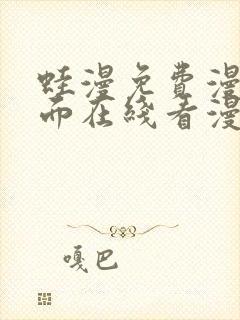 蛙漫免费漫
而在线看漫
嘎巴